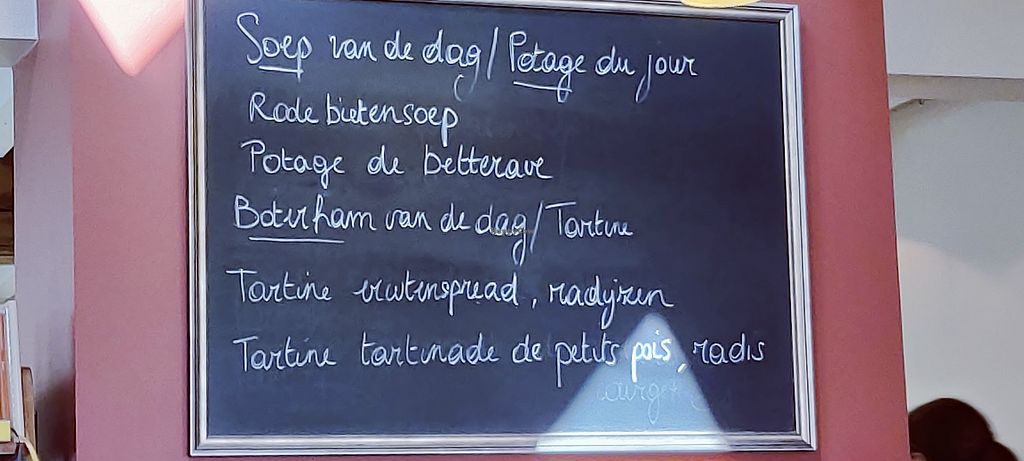 Soep van de dag / Potage du jour
Rode bietensoep
Potage de betterave
Boterham van de dag / Tartine
Tartine erwtenspread, radijzen
Tartine tartinade de petits pois, radis